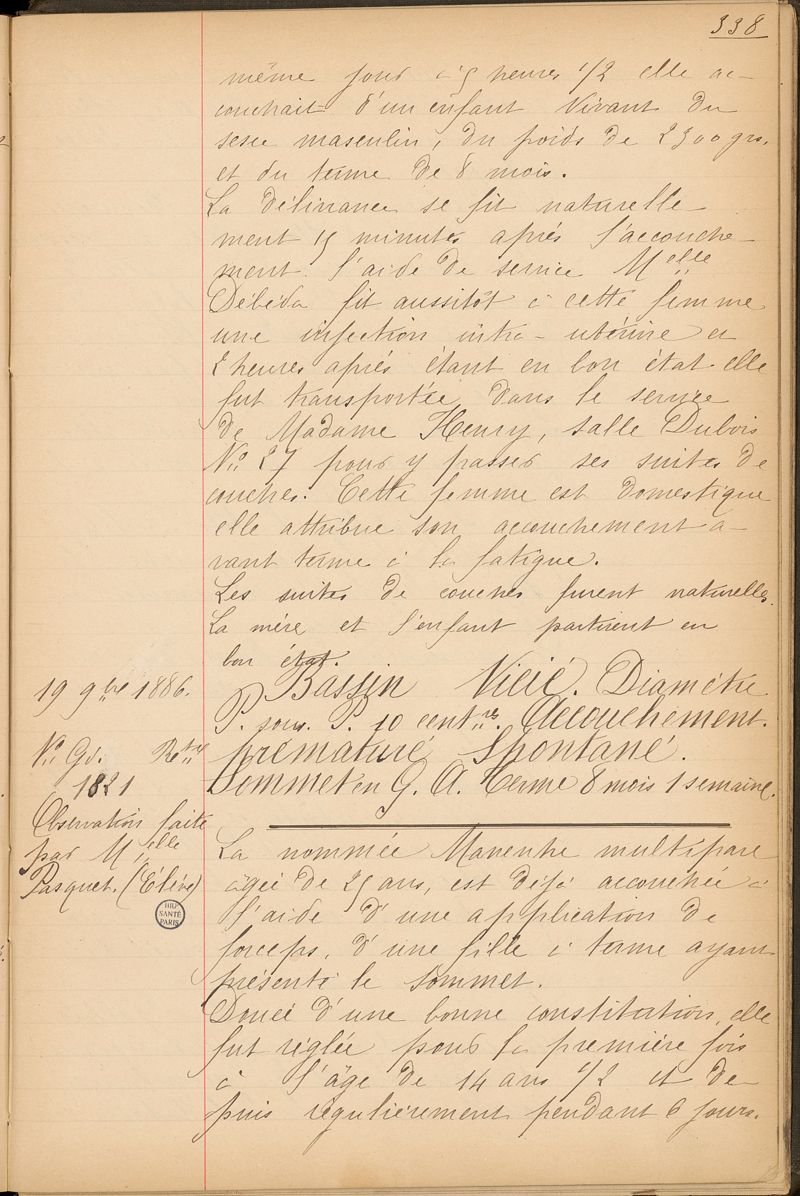 338
même jour à 5 heures 1/2 elle ac-
couchait d'un enfant vivant du
sexe masculin, du poids de 2300 grs.
et du terme de 8 mois.
La délivrance se fit naturelle-
ment 15 minutes après l'accouche-
ment. l'aide de service Melle
Débéda fit aussitôt à cette femme
une injection intra-utérine et
2 heures après étant en bon état elle
fut transportée dans le service
de Madame Henry, salle Dubois
No 27 pour y passer ses suites de
couches. Cette femme est domestique
elle attribue son accouchement a-
vant terme à la fatigue.
Les suites de couches furent naturelles.
La mère et l'enfant partirent en
bon état.
19 9bre 1886.
Bassin Vicié. Diamètre
P. sous. P. 10 centres. Accouchement.
prématuré Spontané.
Sommet en G. A. Terme 8 mois 1 semaine.
No Gd.
1821
Observation faite
par Melle
Pasquet. (Elève)
BIU
SANTÉ
PARIS
La nommée multipare
âgée de 25 ans, est déjà accouchée à
l'aide d'une application de
forceps, d'une fille à terme ayant
présenté le sommet.
Douée d'une bonne constitution, elle
fut réglée pour la première fois
à l'âge de 14 ans 1/2 et de-
puis régulièrement pendant 6 jours.